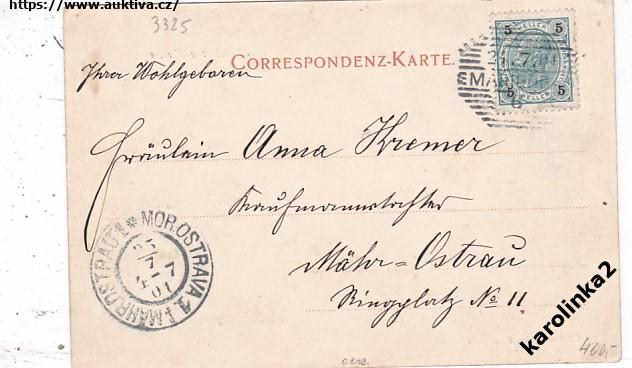 https://www.auktiva.cz/
3325
CORRESPONDENZ-KARTE.
5 HELLER 5
5 HELLER 5
Ihrer Wohlgeboren
Fräulein Anna Kremer
Kaufmannstochter
Mähr=Ostrau
Ringplatz No 11
MÄHR.OSTRAU 1 * MOR.OSTRAVA 1.
7
4-7
01
karolinka2
400,-